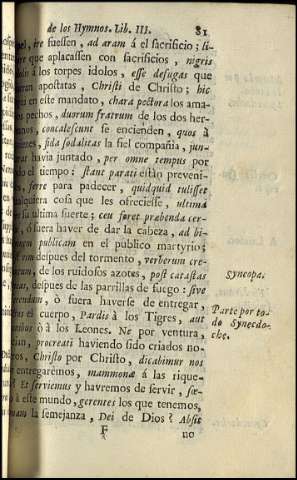 de los Hymnos. Lib. III. 81
ire fuessen, ad aram á el sacrificio; si-
que aplacassen con sacrificios, nigris
á los torpes idolos, esse desugas que
apostatas, Christi de Christo; hic
en este mandato, chara pectora los ama-
pechos, duorum fratrum de los dos her-
concalescunt se encienden, quos à
fida sodalitas la fiel compañia, jun-
havia juntado, per omne tempus por
el tiempo; stant parati estàn preveni-
ferre para padecer, quidquid tulisset
qualquiera cosa que les ofreciesse, ultima
su ultima suerte; ceu foret præbenda cer-
ò fuera haver de dar la cabeza, ad bi-
publicam en el publico martyrio;
despues del tormento, verberum cre-
de los ruidosos azotes, post catastas
despues de las parrillas de fuego: sive
ò fuera haverse de entregar,
el cuerpo, Pardis à los Tigres, aut
ò à los Leones. Ne por ventura,
procreati haviendo sido criados no-
Christo por Christo, dicabimur nos
entregarèmos, mammonæ á las rique-
? Et serviemus y havremos de servir, sæ-
à este mundo, gerentes los que tenemos,
la semejanza, Dei de Dios? Absit
F no
Syncopa.
Parte por to-
do Synecdo-
che.